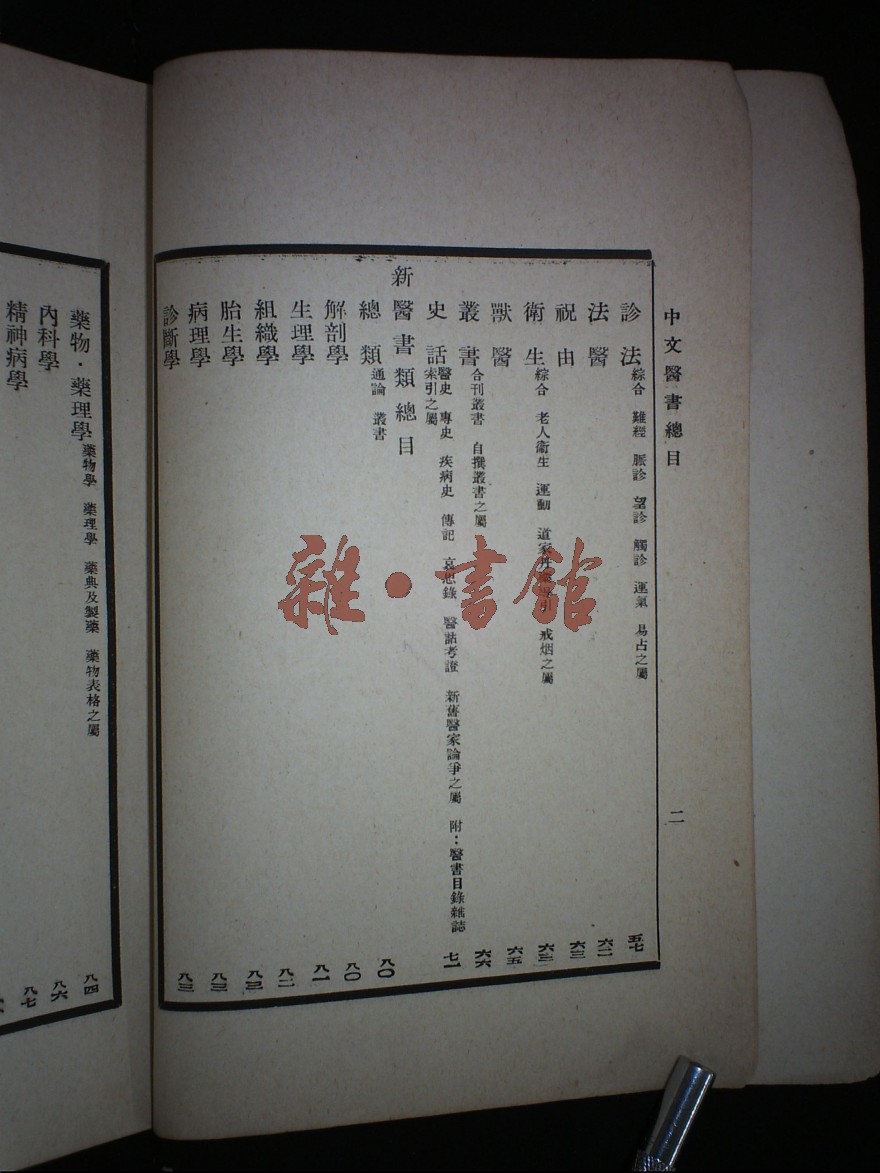 中文醫書總目
二
診法 綜合 難經 脈診 望診 觸診 運氣 易占之屬 五七
法醫 六二
祝由 六三
衛生 綜合 老人衞生 運動 道家丹 引 戒烟之屬 六三
獸醫 六五
叢書 合刊叢書 自撰叢書之屬 六六
史話 醫史 專史 疾病史 傳記 哀思錄 醫話考證 新舊醫家論爭之屬 附：醫書目錄雜誌
索引之屬 七一
新醫書類總目
總類 通論 叢書 八〇
解剖學 八〇
生理學 八一
組織學 八二
胎生學 八三
病理學 八三
診斷學 八三
藥物·藥理學 藥物學 藥理學 藥典及製藥 藥物表格之屬 八四
內科學 八六
精神病學 八七
雜·書館